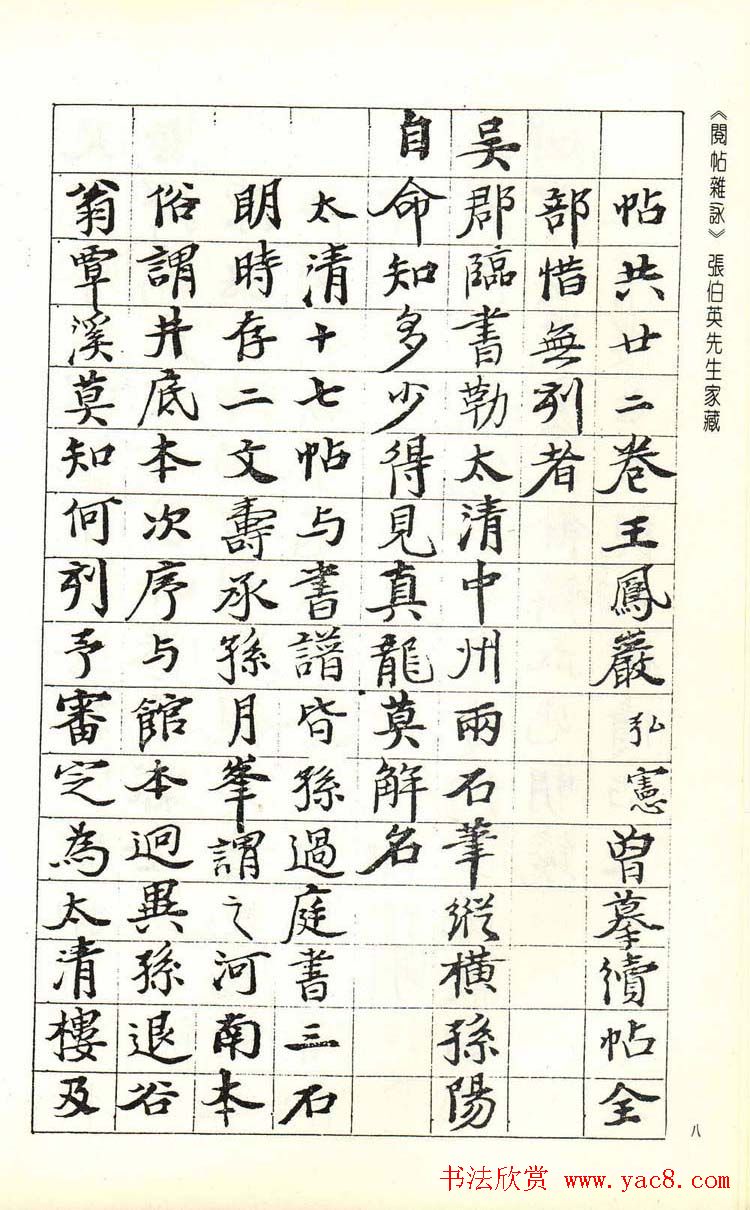 《閱帖雜詠》張伯英先生家藏
帖共廿二卷王鳳巖弘憲曾摹續帖全
部惜無列者
吴郡臨書勒太清中州兩石筆縱橫孫陽
自命知多少得見真龍莫解名
太清十七帖与書譜皆孫過庭書三石
明時存二文壽承孫月峯謂之河南本
俗謂井底本次序与館本迥異孫退谷
翁覃溪莫知何列予審定為太清樓及
八
书法欣赏 www.yac8.com